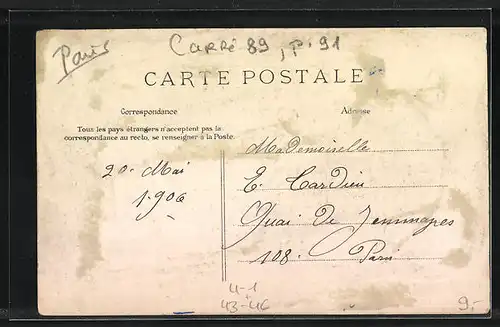 Paris
Carré 89, p. 91
CARTE POSTALE
Correspondance
Adresse
Tous les pays étrangers n'acceptent pas la
correspondance au recto, se renseigner à la Poste.
20. Mai
1.906
Mademoiselle
E. Cardieu
Quai de Jemmapes
108. Paris
4-1
43-46
9.-